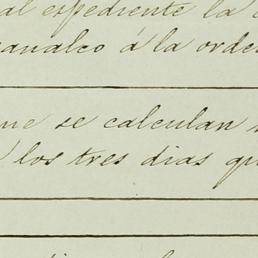 al espediente la
canalco á la orde
ue se calculan
los tres dias qu